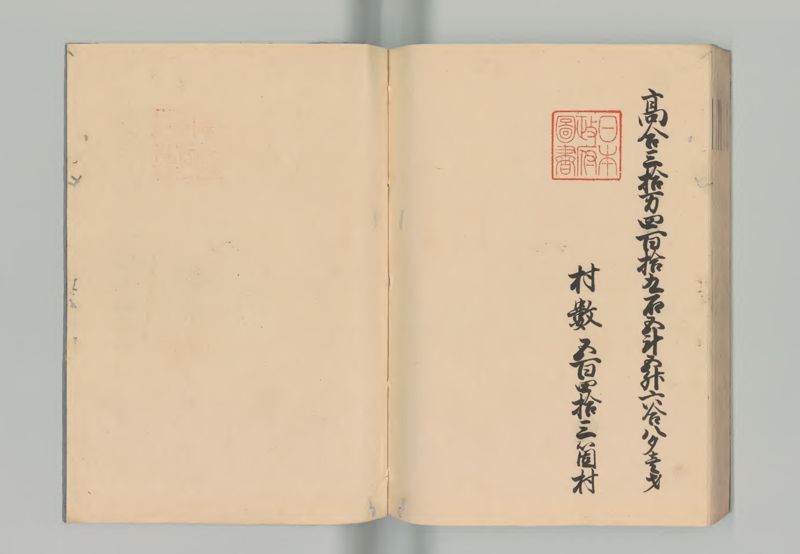 高合三拾万四百拾九石五斗五升六合八夕壱才
村数五百四拾三箇村
日本
政府
圖書